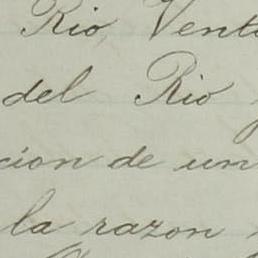 Rio, Vent
del Rio
cion de un
la razon